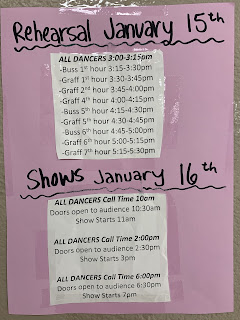 Rehearsal January 15th
ALL DANCERS 3:00-3:15pm
-Buss 1st hour 3:15-3:30pm
-Graff 1st hour 3:30-3:45pm
-Graff 2nd hour 3:45-4:00pm
-Graff 4th hour 4:00-4:15pm
-Buss 5th hour 4:15-4:30pm
-Graff 5th hour 4:30-4:45pm
-Buss 6th hour 4:45-5:00pm
-Graff 6th hour 5:00-5:15pm
-Graff 7th hour 5:15-5:30pm
Shows January 16th
ALL DANCERS Call Time 10am
Doors open to audience 10:30am
Show Starts 11am
ALL DANCERS Call Time 2:00pm
Doors open to audience 2:30pm
Show Starts 3pm
ALL DANCERS Call Time 6:00pm
Doors open to audience 6:30pm
Show Starts 7pm